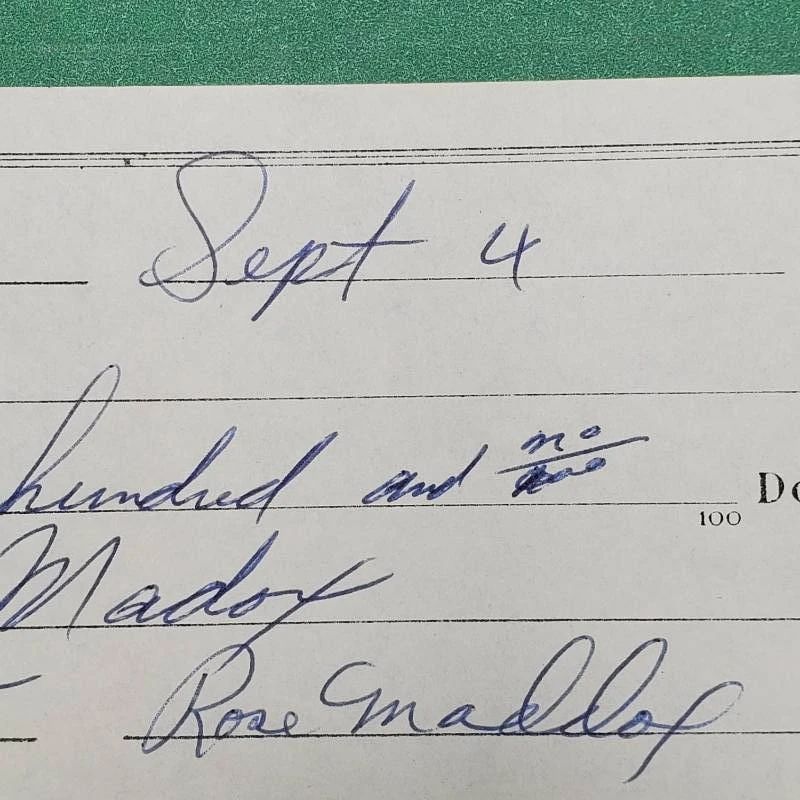 Sept 4
hundred and no
100 Do
Madox
Rose Maddox